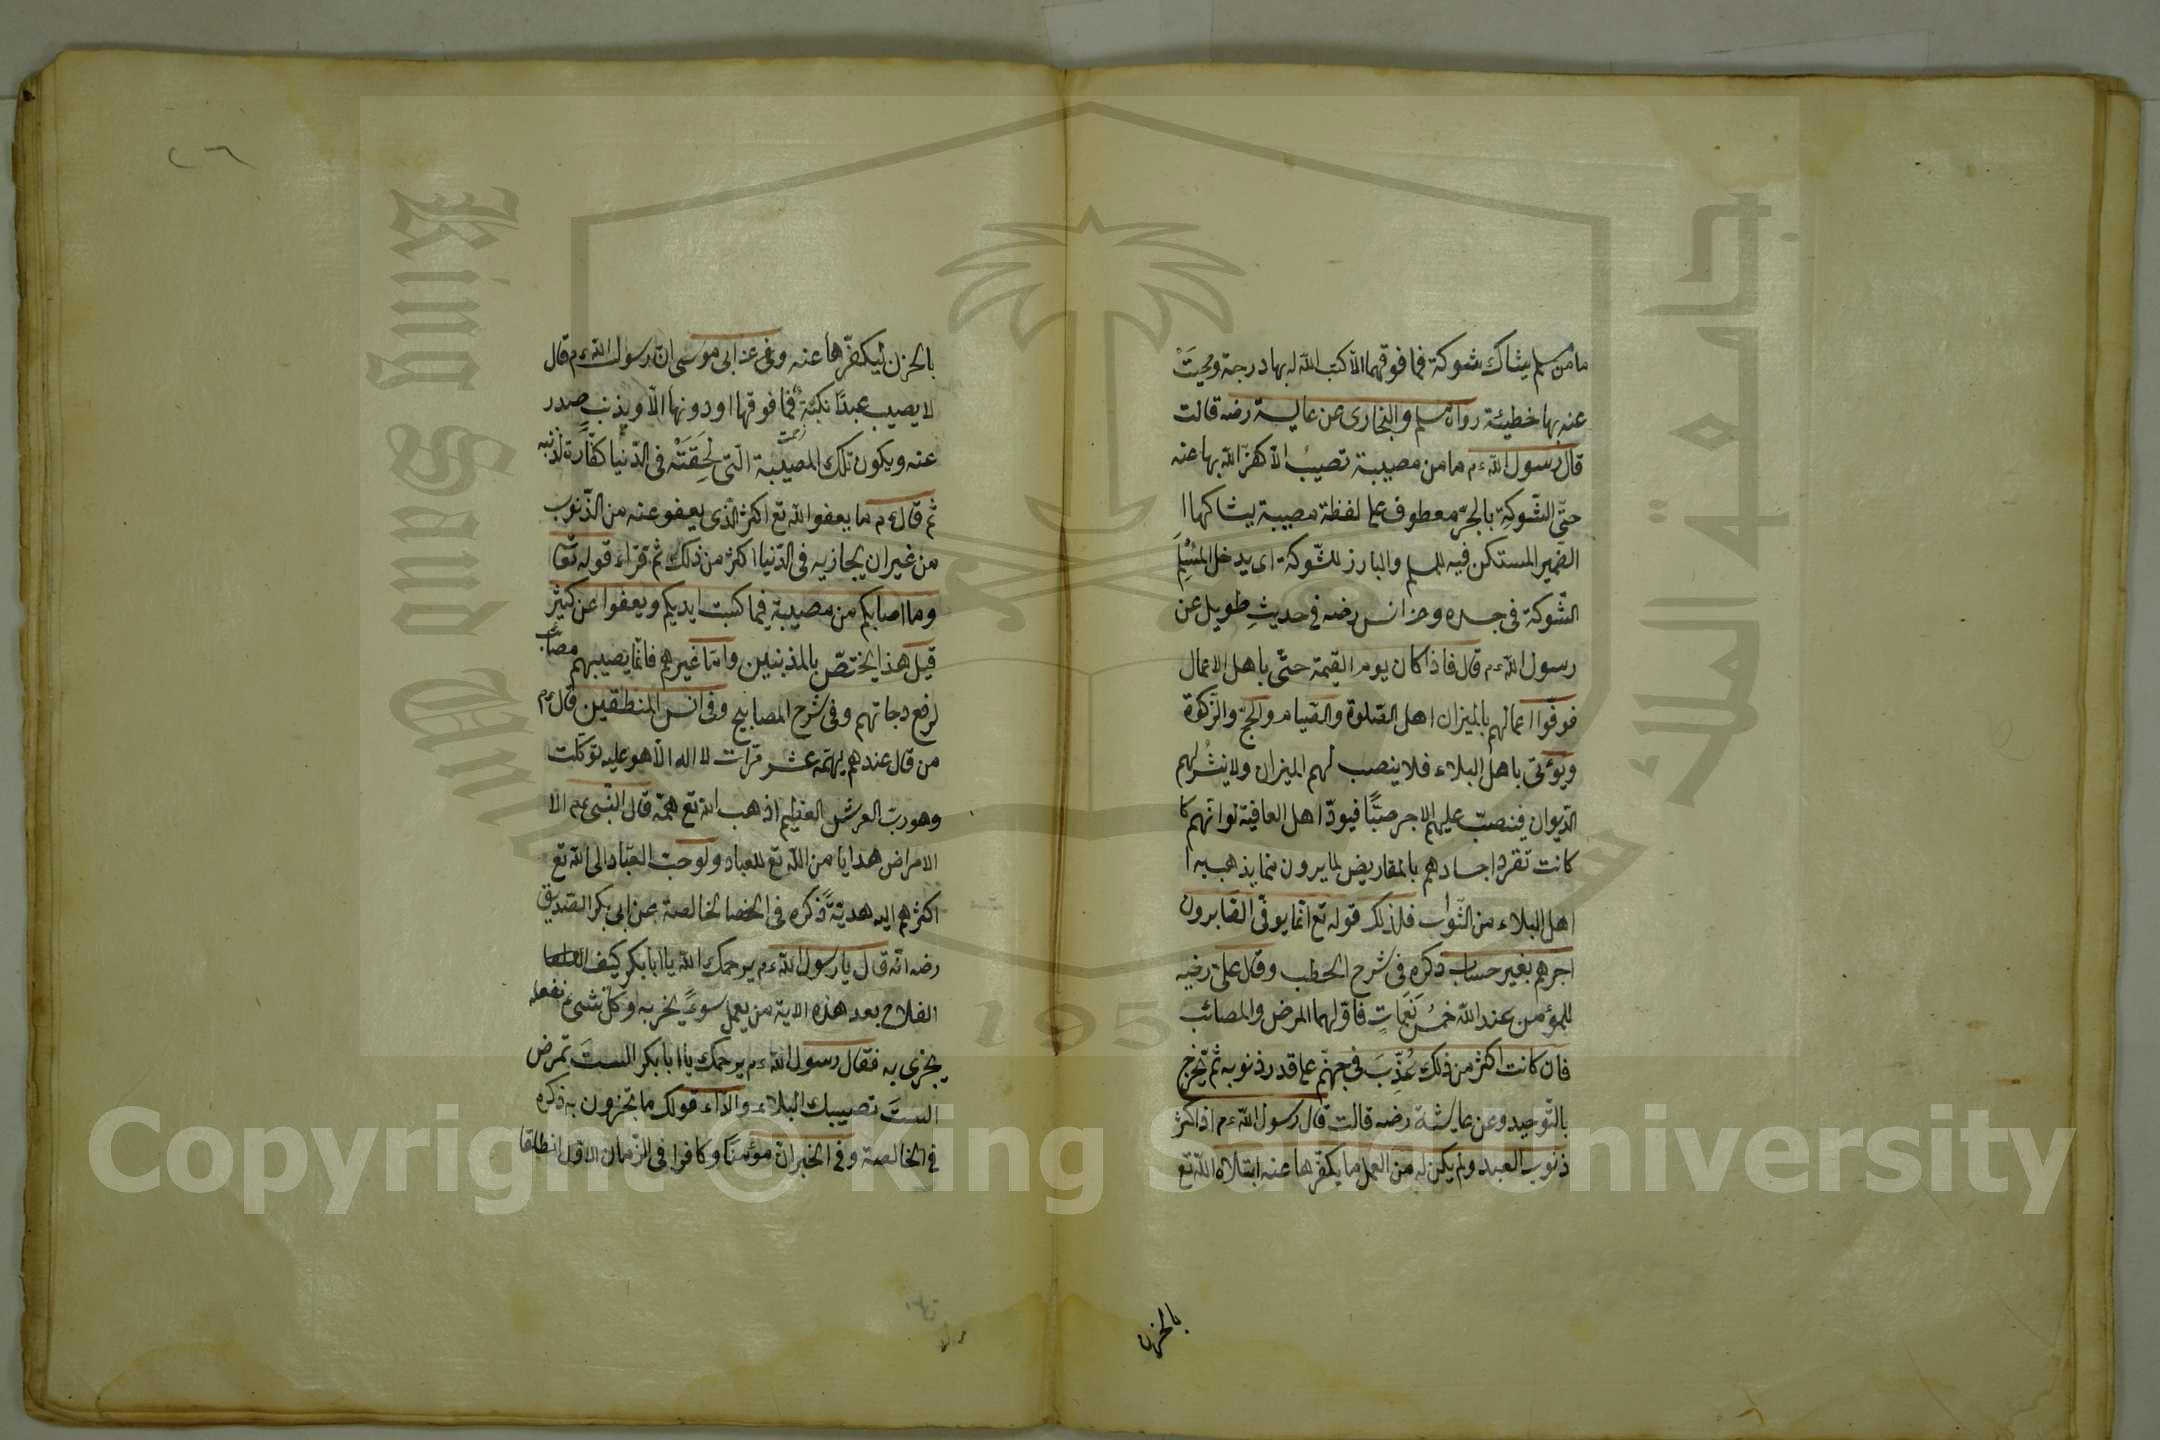 ما من مسلم يشاك شوكة فما فوقهما الا كتب الله له بها درجة ومحيت
عنه بها خطيئة رواه مسلم والبخارى عن عايشة رضه قالت
قال رسول الله ءم ما من مصيبة تصيب الا كفر الله بها عنه
حتى الشوكة بالجر معطوف على لفظة مصيبة يشاكها ا
الضمير المستكن فيه للمسلم والبارز للشوكة اى يدخل المسلم
الشوكة فى جسده وعن انس رضه فى حديث طويل عن
رسول الله ءم قال فاذا كان يوم القيمة حتى باهل الاعمال
فوفوا اعمالهم بالميزان اهل الصلوة والصيام والحج والزكوة
ويؤتى باهل البلاء فلا ينصب لهم الميزان ولا ينشر لهم
الديوان فينصب عليهم الاجر صبا فيود اهل العافية لو انهم كا
كانت تقرض اجسادهم بالمقاريض لما يرون مما يذهب به ا
اهل البلاء من الثواب فلذلك قوله تع انما يوفى الصابرون
اجرهم بغير حساب ذكره فى شرح الخطب وقال على رضيه
للمؤمن عند الله خمس نعمات فاولهما المرض والمصائب
فان كانت اكثر من ذلك عذب فى جهنم على قدر ذنوبه ثم يخرج
بالتوحيد وعن عايشة رضه قالت قال رسول الله ءم اذا كثر
ذنوب العبد ولم يكن له من العمل ما يكفرها عنه ابتلاه الله تع
بالحزن
٢٦
بالحزن ليكفرها عنه وفى عن ابى موسى ان رسول الله ءم قال
لا يصيب عبدا نكبة فما فوقها او دونها الا وبذنب صدر
عنه ويكون تلك المصيبة التى لحقته فى الدنيا كفارة لذنبه
ثم قال ءم ما يعفوا الله تع اكثر الذى يعفو عنه من الذنوب
من غير ان يجازيه فى الدنيا اكثر من ذلك ثم قراء قوله تعا
وما اصابكم من مصيبة فيما كسبت ايديكم ويعفوا عن كثير
قيل هذا يختص بالمذنبين واما غيرهم فانما يصيبهم مصائب
لرفع دجاتهم وفى شرح المصابيح وفى انس المنطقين قال ءم
من قال عند هم يهتمه عشر مرات لا اله الا هو عليه توكلت
وهو رب العرش العظيم اذهب الله تع همه قال النبى ءم الا
الامراض هدايا من الله تع للعباد ولوحب العباد الى الله تع
اكثرهم اليه هدية ذكره فى الخصا لخالصة عن ابى بكر الصديق
رضه انه قال يا رسول الله ءم يرحمك الله يا ابا بكر كيف
الفلاح بعد هذه الاية من يعمل سوء يجز به او كل شىء نفعله
يجزى به فقال رسول الله ءم يرحمك يا ابا بكر الست تمرض
الست تصيبك البلاء والاذاء قولك ما تجزون به ذكره
فى الخالصة وفى الخبر ان مؤمنا وكافرا فى الزمان الاول انطلقا
King Saud University
جامعة الملك سعود
1957
Copyright © King Saud University